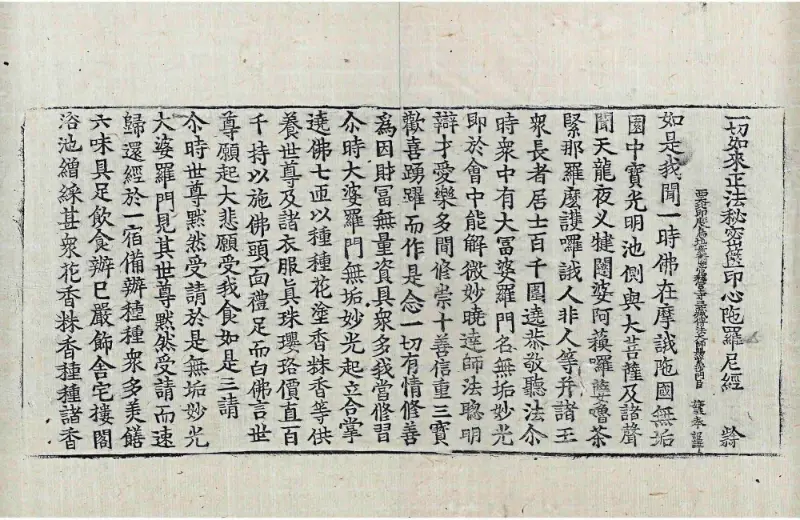 一切如來正法秘密篋印心陁羅尼經
三藏傳法大師賜紫沙門臣 施護 奉 詔譯
如是我聞一時佛在摩誐陁國無垢
園中寶光明池側與大菩薩及諸聲
聞天龍夜叉犍闥婆阿蘓囉蘖嚕茶
緊那羅麼護囉誐人非人等并諸王
衆長者居士百千圍遶恭敬聽法尒
時衆中有大冨婆羅門名無垢妙光
即於會中能解微妙曉達師法聡明
辯才愛樂多聞修崇十善信重三寶
歡喜踴躍而作是念一切有情修善
爲因財冨無量資具衆多我當修習
尒時大婆羅門無垢妙光起立合掌
遶佛七匝以種種花塗香粖香等供
養世尊及諸衣服眞珠瓔珞價直百
千持以施佛頭面禮足而白佛言世
尊願起大悲願受我食如是三請
尒時世尊黙然受請於是無垢妙光
大婆羅門見其世尊黙然受請而速
歸還經於一宿備辦種種衆多美饍
六味具足飲食辦巳嚴飾舍宅樓閣
浴池繒綵甚衆花香粖香種種諸香